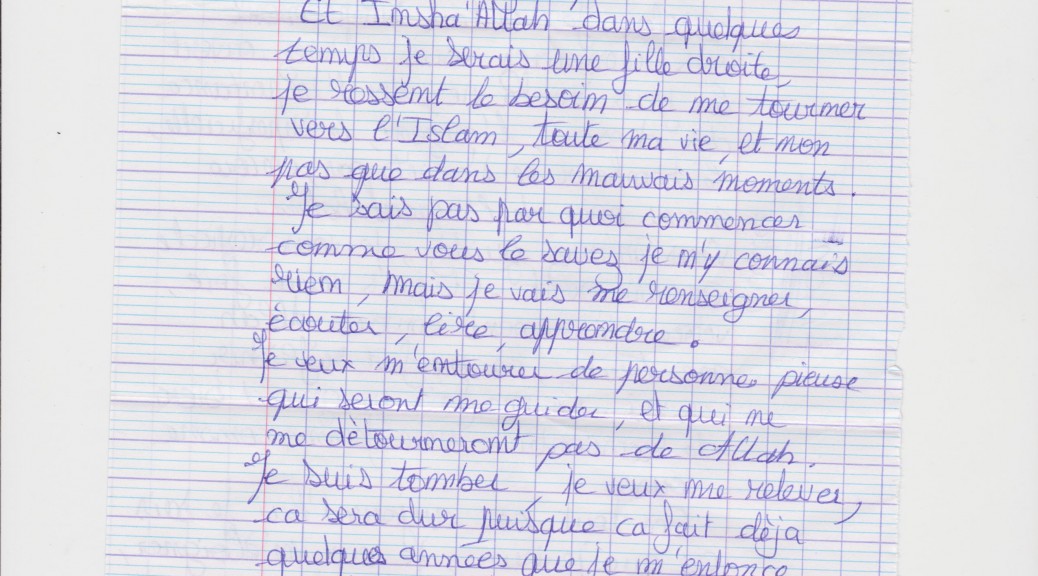 Et Insha'Allah dans quelques
temps je serais une fille droite,
je ressent le besoin de me tourner
vers l'Islam, toute ma vie, et non
pas que dans les mauvais moments.
Je sais pas par quoi commencer
comme vous le savez je m'y connais
rien, mais je vais me renseigner,
écouter, lire, apprendre.
Je veux m'entourer de personnes pieuse
qui seront me guider, et qui ne
me détourneront pas de Allah.
Je suis tomber, je veux me relever,
ca sera dur puisque ca fait déjà
quelques années que je m'enfonce